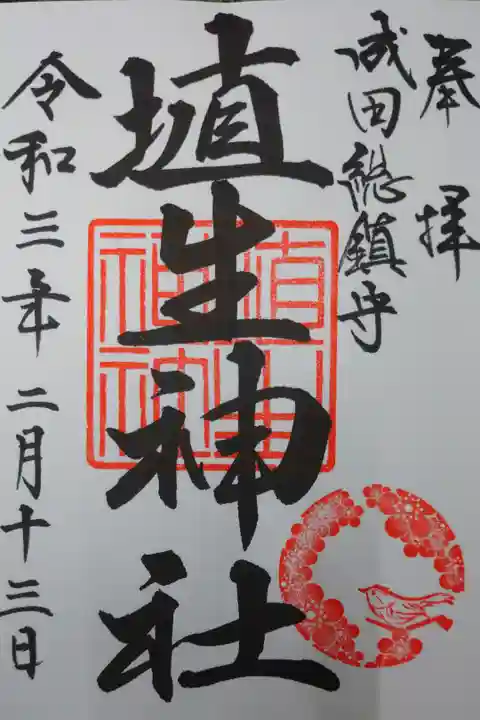 奉拝
成田総鎮守
埴生神社
令和三年二月十三日
埴生神社